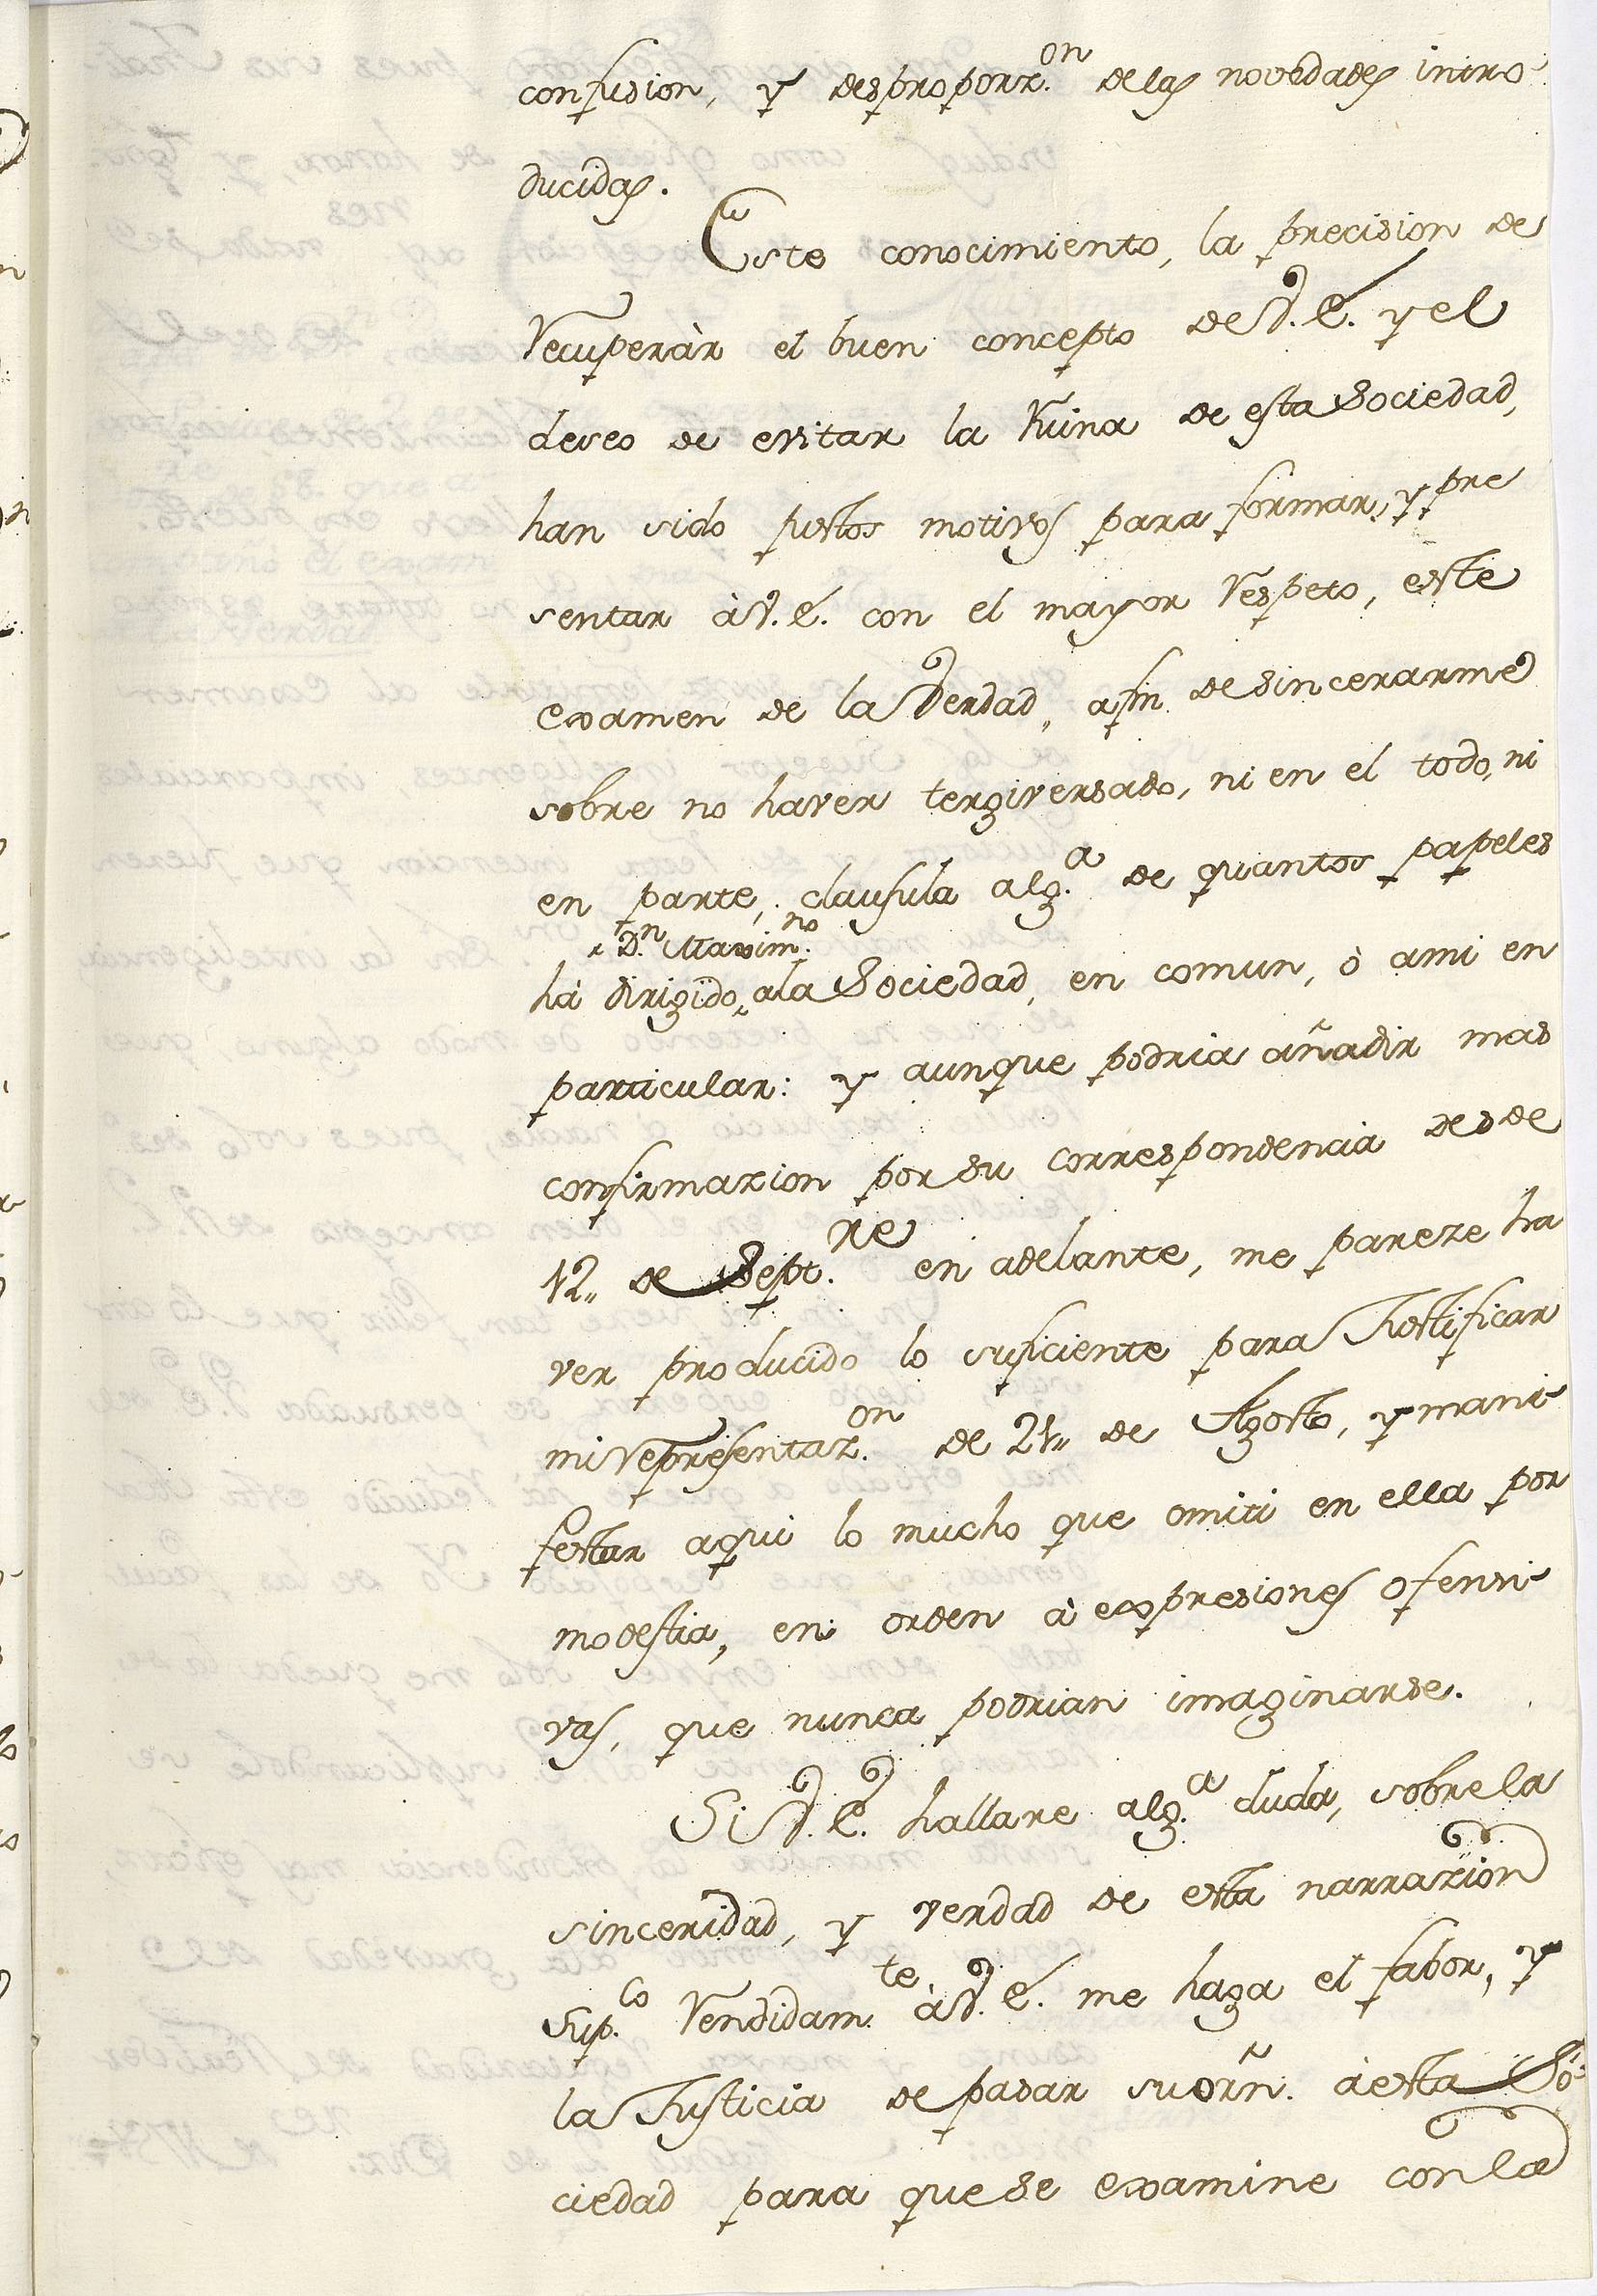 confusion, y desproporz.on delas novedades intro
ducidas.
Este conocimiento, la precision de
recuperàr el buen concepto de V.E. y el
deseo de evitar la Ruina de esta Sociedad,
han sido justos motivos para formar, y pre
sentar à V.E. con el mayor respeto, este
examen de la Verdad, afin de sincerarme
sobre no haver tergiversado, ni en el todo, ni
en parte, clausula alg.a de quantos papeles
Dn Maxim.no
hà dirigido, ala Sociedad, en comun, ò ami en
particular: y aunque podria añadir mas
confirmazion por su correspondencia desde
12,, de Sept.re en adelante, me pareze ha
ver producido lo suficiente para Justificar
mi representaz.on de 21,, de Agosto, y mani-
festar aqui lo mucho que omiti en ella por
modestia, en orden à expresiones ofensi-
vas, que nunca podrian imaginarse.
Si V.E. hallare alg.a duda, sobre la
sinceridad, y verdad de esta narrazion
sup.co rendidam.te à V.E. me haga el fabor, y
la Justicia de pasar su orñ. à esta So-
ciedad para que se examine con la